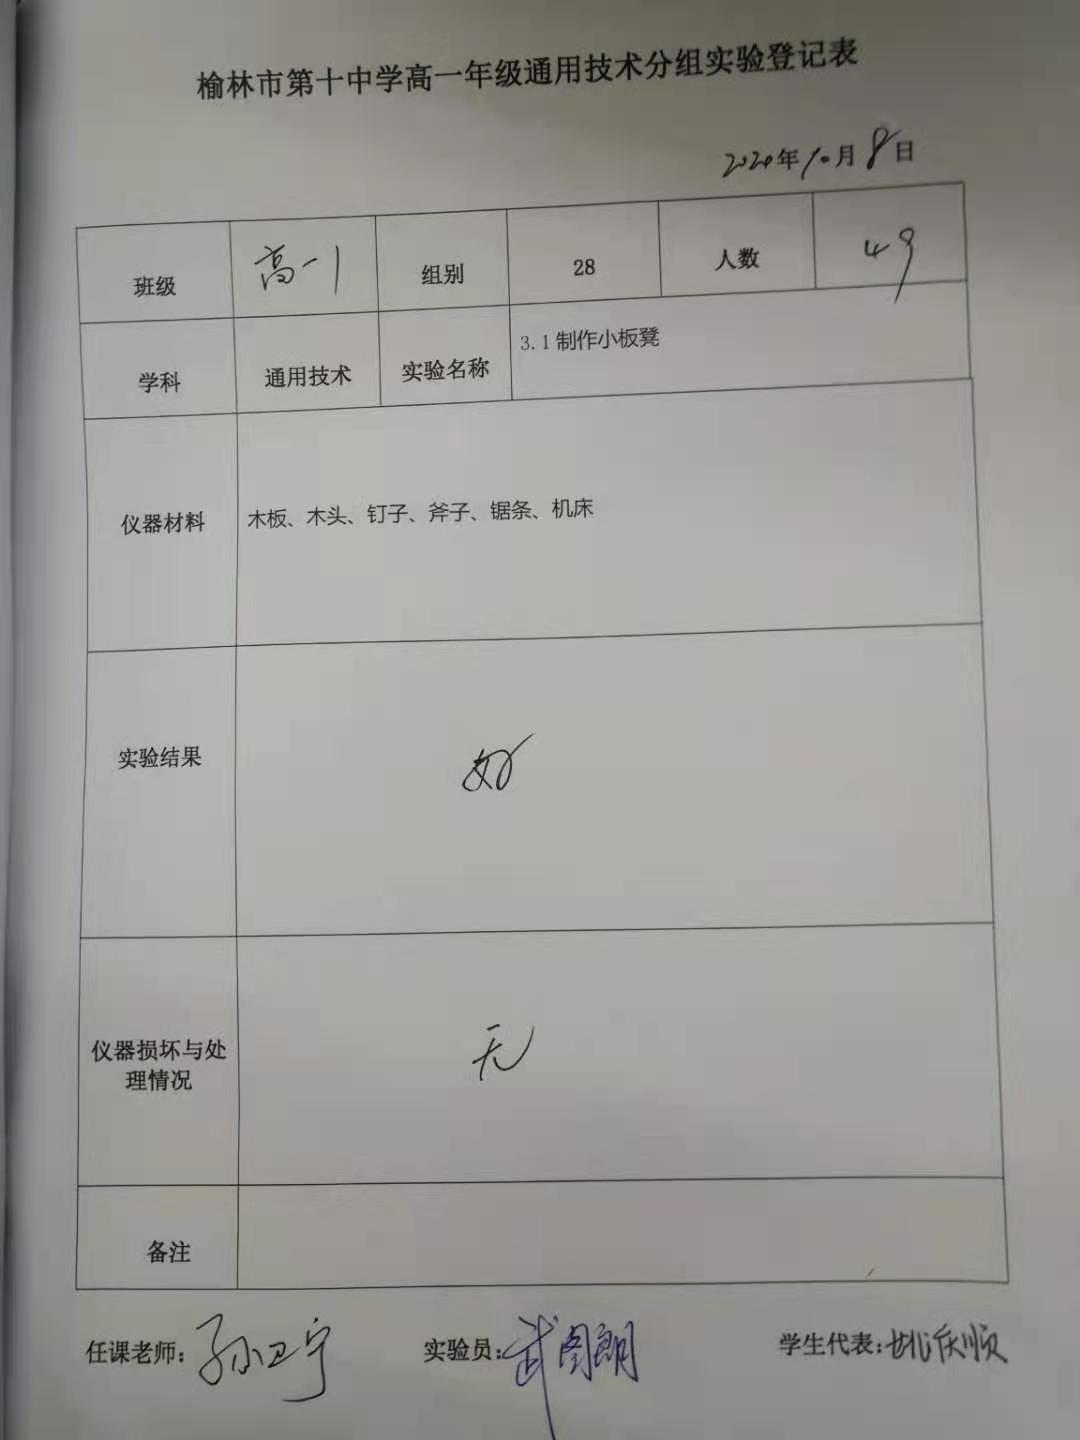 榆林市第十中学高一年级通用技术分组实验登记表
2020年10月8日
班级 高一1 组别 28 人数 49
学科 通用技术 实验名称 3.1制作小板凳
仪器材料 木板、木头、钉子、斧子、锯条、机床
实验结果 好
仪器损坏与处
理情况 无
备注
任课老师：孙卫宁 实验员： 学生代表：姚庆顺